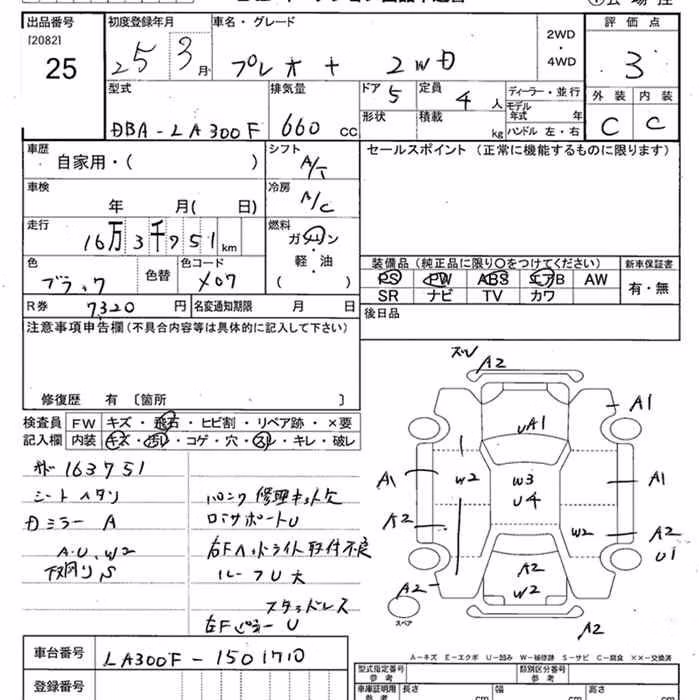 出品番号 初度登録年月 車名・グレード 2WD・4WD 評価点
[2082]
25 25 3月 プレオ+ 2WD 3
型式 排気量 ドア 5 定員 4人 ディーラー・並行 外装 内装
モデル年式 年
DBA-LA300F 660cc 形状 積載 kg ハンドル 左・右 C C
車歴 シフト セールスポイント(正常に機能するものに限ります)
自家用・( ) A/T
車検 冷房
年 月( 日) A/C
走行 燃料
16万3千751km ガソリン
軽・油
( )
色 色替 色コード 装備品(純正品に限り○をつけてください) 新車保証書
ブラック X07 PS PW ABS エアB AW 有・無
SR ナビ TV カワ
R券 7320円 名変通知期限 月 日 後日品
注意事項申告欄(不具合内容等は具体的に記入して下さい)
修復歴 有 〔箇所
検査員 FW キズ・飛石・ヒビ割・リペア跡・×要
記入欄 内装 キズ・汚レ・コゲ・穴・スレ・キレ・破レ
163751
シートヘタリ
Dミラー A
A.U.W2
下回りS
パンク修理キット欠
ロッカサポートU
右Fヘッドライト取付不良
ルーフU大
スタッドレス
右FピラーU
A2
A1
UA1
W2 W3 U4
A1 A1
A2 W2 A2
U1
A2 A2
W2
A2
スペア
A－キズ E－エクボ U－凹み W－補修跡 S－サビ C－腐食 ××－交換済
車台番号 LA300F-1501710
登録番号
型式指定番号 参考 類別区分番号 参考
車庫証明用 参考 長さ cm 幅 cm 高さ cm